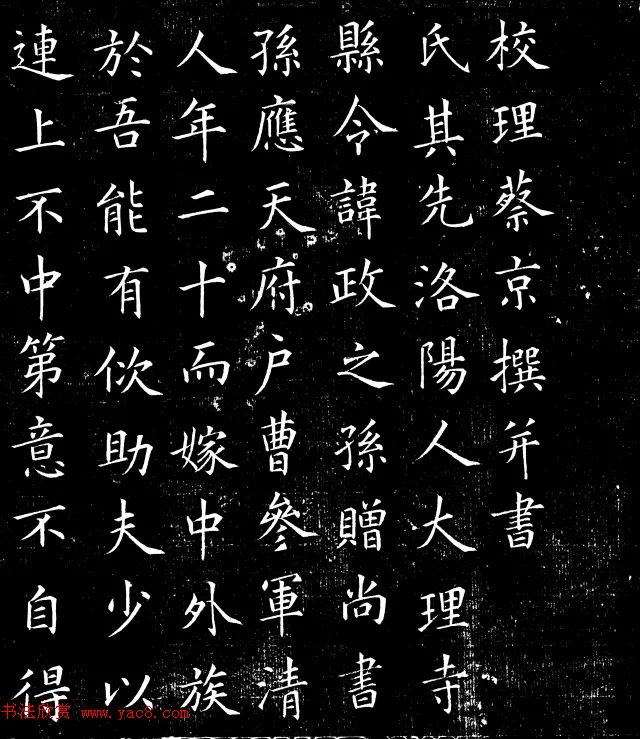 校理蔡京撰并書
氏其先洛陽人大理寺
縣令諱政之孫贈尚書
孫應天府户曹參軍清
人年二十而嫁中外族
於吾能有佽助夫少以
連上不中第意不自得
书法欣赏 www.yac8.com